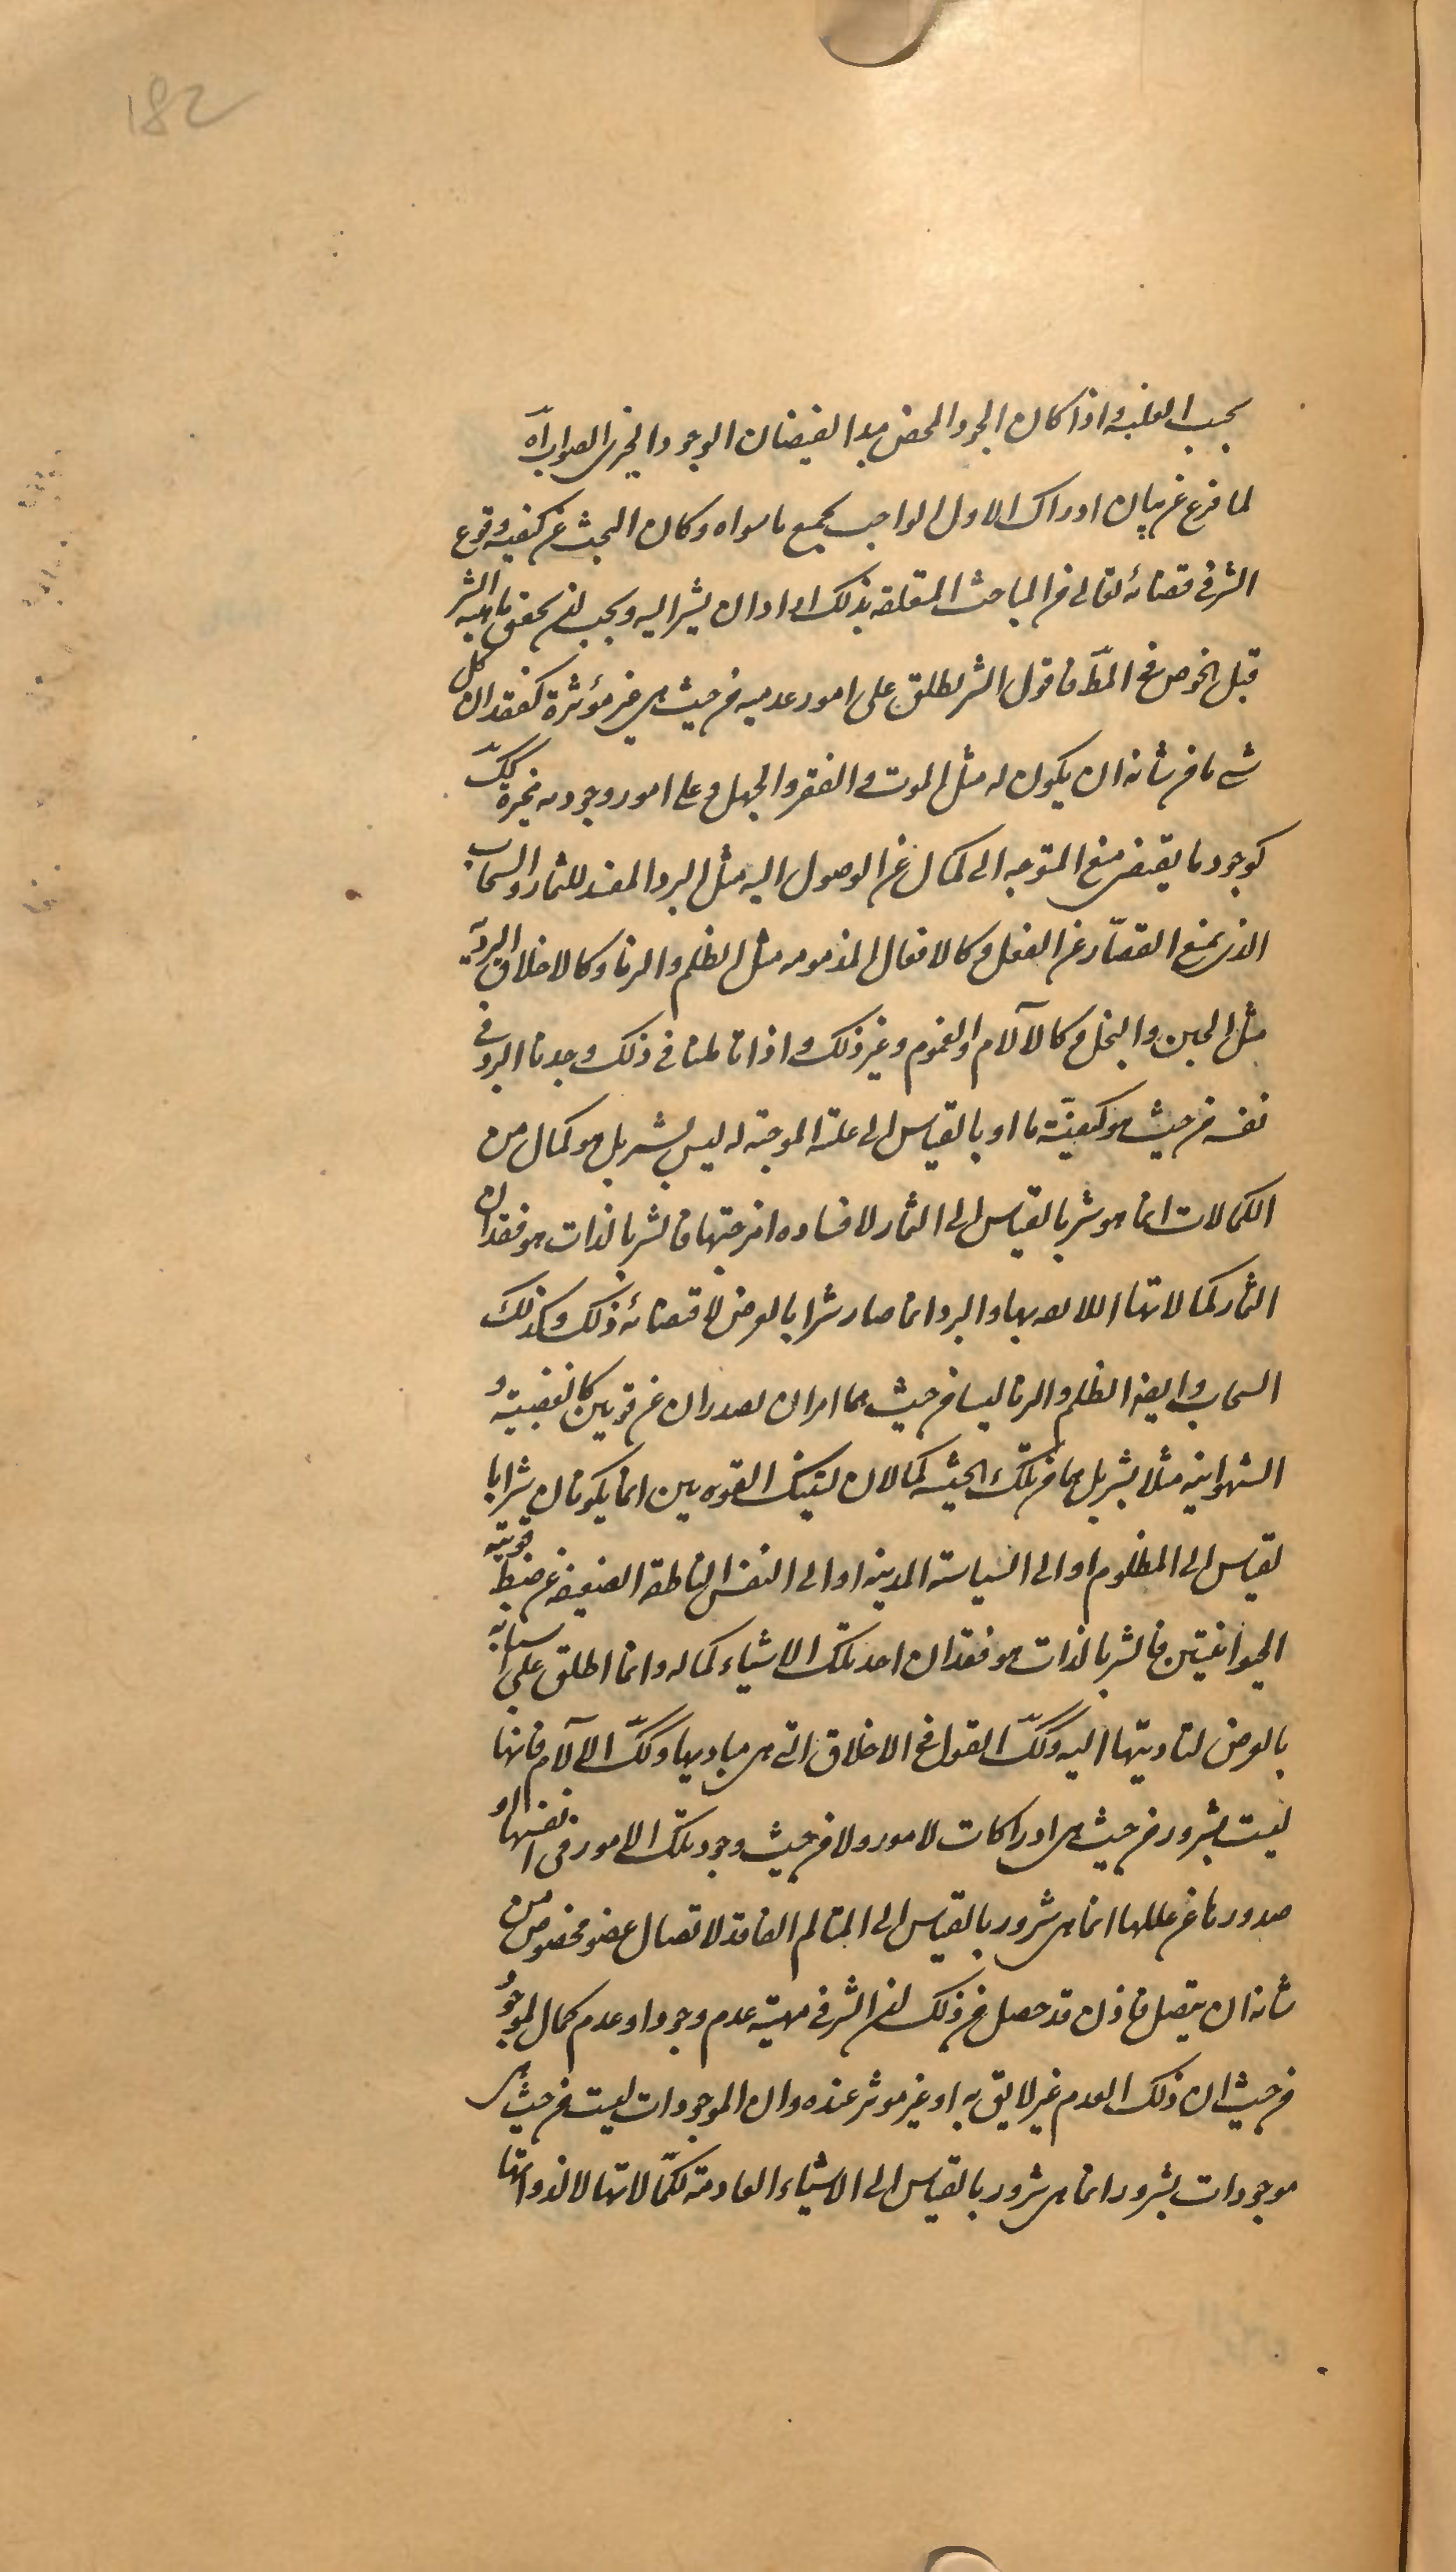 182
بحسب الغلبه و اذا كان الجود المحض مبدا لفيضان الوجود الخيرى الصواب اه
لما فرغ عن بيان ادراك الاول الواجب لجميع ما سواه و كان البحث عن كيفيه وقوع
الشر فى قضائه تعالى من المباحث المتعلقه بذلك اراد ان يشير اليه و يجب ان يحقق ماهيه الشر
قبل الخوض فى المط فاقول الشر يطلق على امور عدميه من حيث هى غير مؤثرة كفقدان كل
شى ما من شانه ان يكون له مثل الموت و الفقر و الجهل و على امور وجوديه كك
كوجود ما يقتضى منع المتوجه الى كمال عن الوصول اليه مثل البرد المفسد للثمار و السحاب
الذى يمنع القصار عن الفعل و كالافعال المذمومه مثل الظلم و الزنا و كالاخلاق الرديه
مثل الجبن و البخل و كالآلام و الغموم و غير ذلك و اذا تاملنا فى ذلك وجدنا البرد فى
نفسه من حيث هو كيفيّة ما او بالقياس الى علته الموجبة له ليس بشر بل هو كمال من
الكمالات انما هو شر بالقياس الى الثمار لافساده امزجتها فالشر بالذات هو فقدان
الثمار كمالاتها اللايقه بها و البرد انما صار شرا بالعرض لاقتضائه ذلك و كذلك
السحاب و ايضا الظلم و الزنا ليسا من حيث هما امران يصدران عن قوتين كالغضبية و
الشهوانية مثلا بشر بل هما من تلك الحيثيه كمالان لتينك القوتين انما يكونان شرا با
لقياس الى المظلوم او الى السياسة المدنيه او الى النفس الناطقه الضعيفه عن ضبط قوتيه
الحيوانيتين فالشر بالذات هو فقدان احد تلك الاشياء كماله و انما اطلق على اسبابه
بالعرض لتاديتها اليه و كك القول فى الاخلاق التى هى مباديها و كك الآلام فانها
ليست بشرور من حيث هى ادراكات لامور و لا من حيث وجود تلك الامور فى انفسها او
صدورها عن عللها انما هى شرور بالقياس الى المتالم الفاقد لاتصال عضو مخصوص من
شانه ان يتصل فاذن قد حصل من ذلك ان الشر فى مهيته عدم وجود او عدم كمال لموجود
من حيث ان ذلك العدم غير لايق به او غير موثر عنده و ان الموجودات ليست من حيث هى
موجودات بشرور انما هى شرور بالقياس الى الاشياء العادمة لكمالاتها لا لذواتها